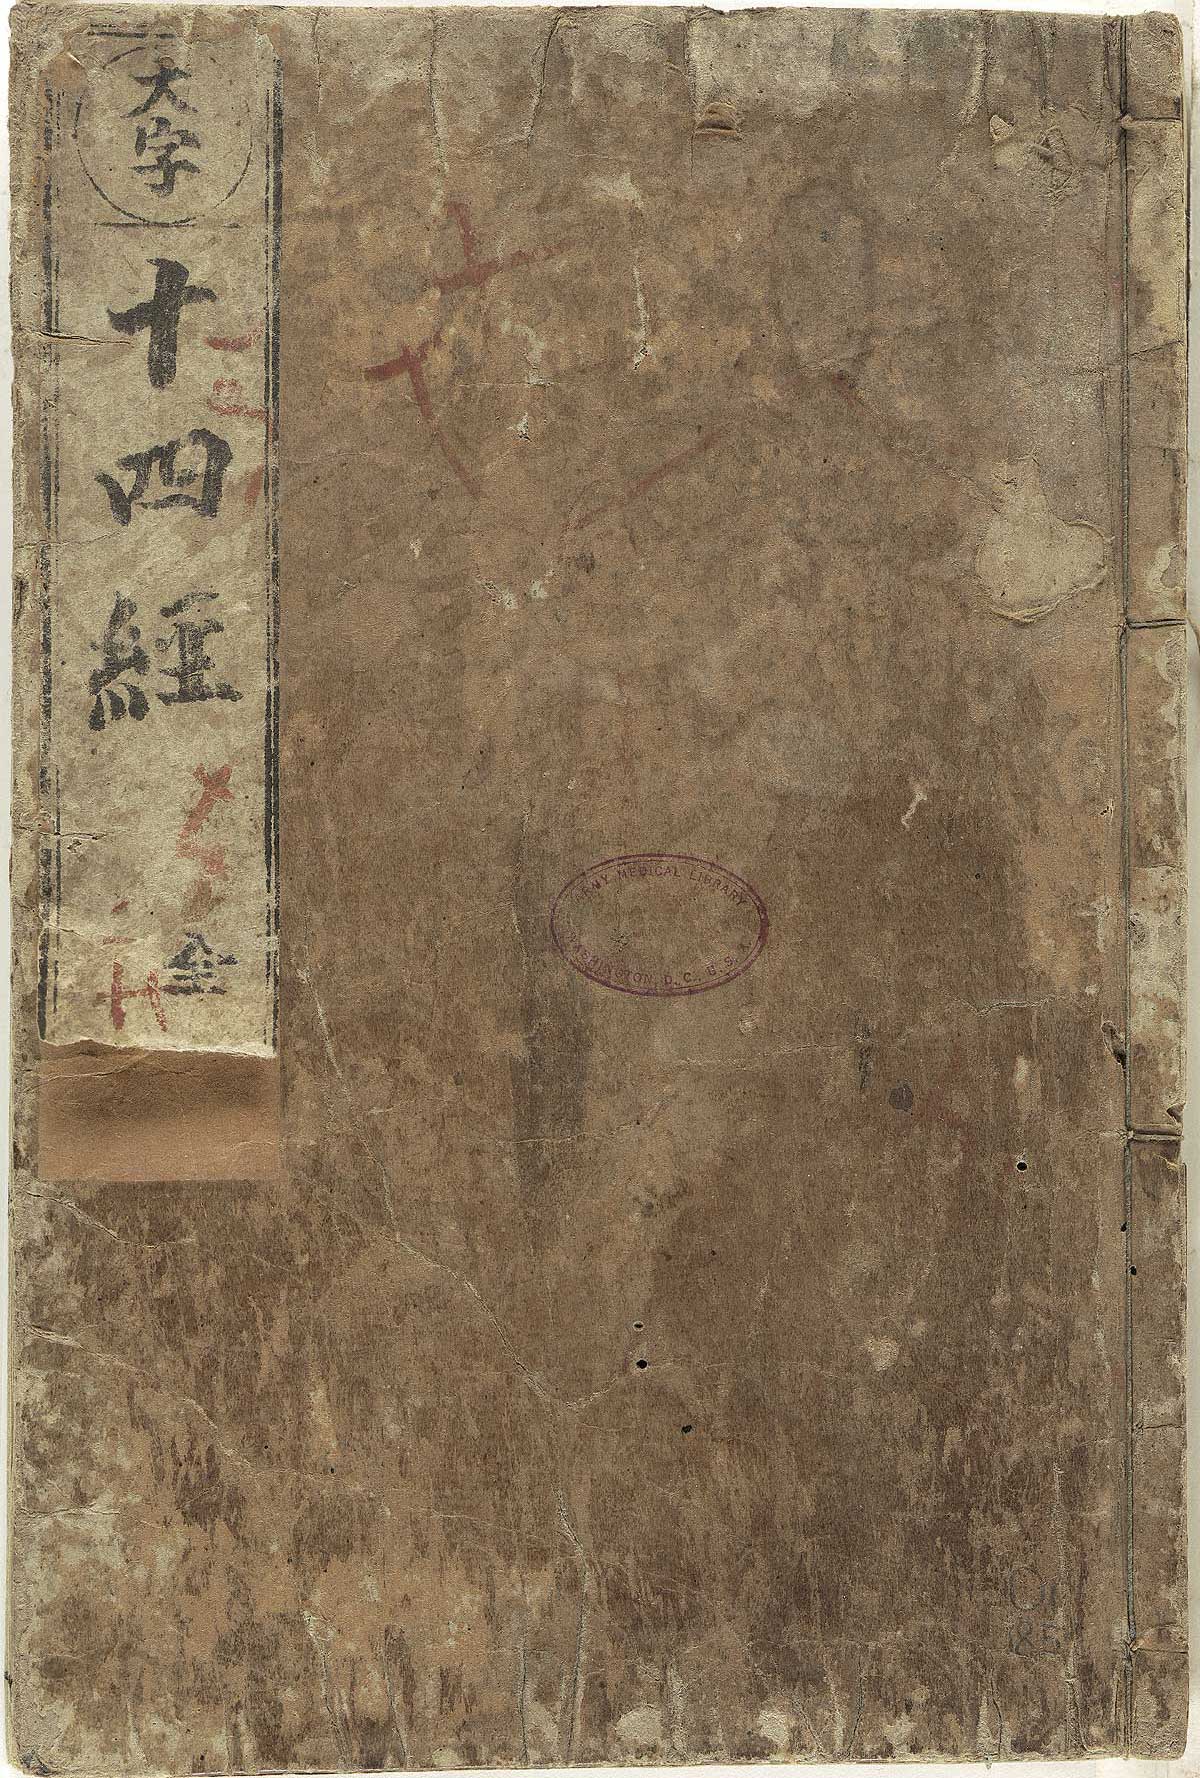 大字
十四經
全
ARMY MEDICAL LIBRARY
WASHINGTON, D.C. U.S.A.